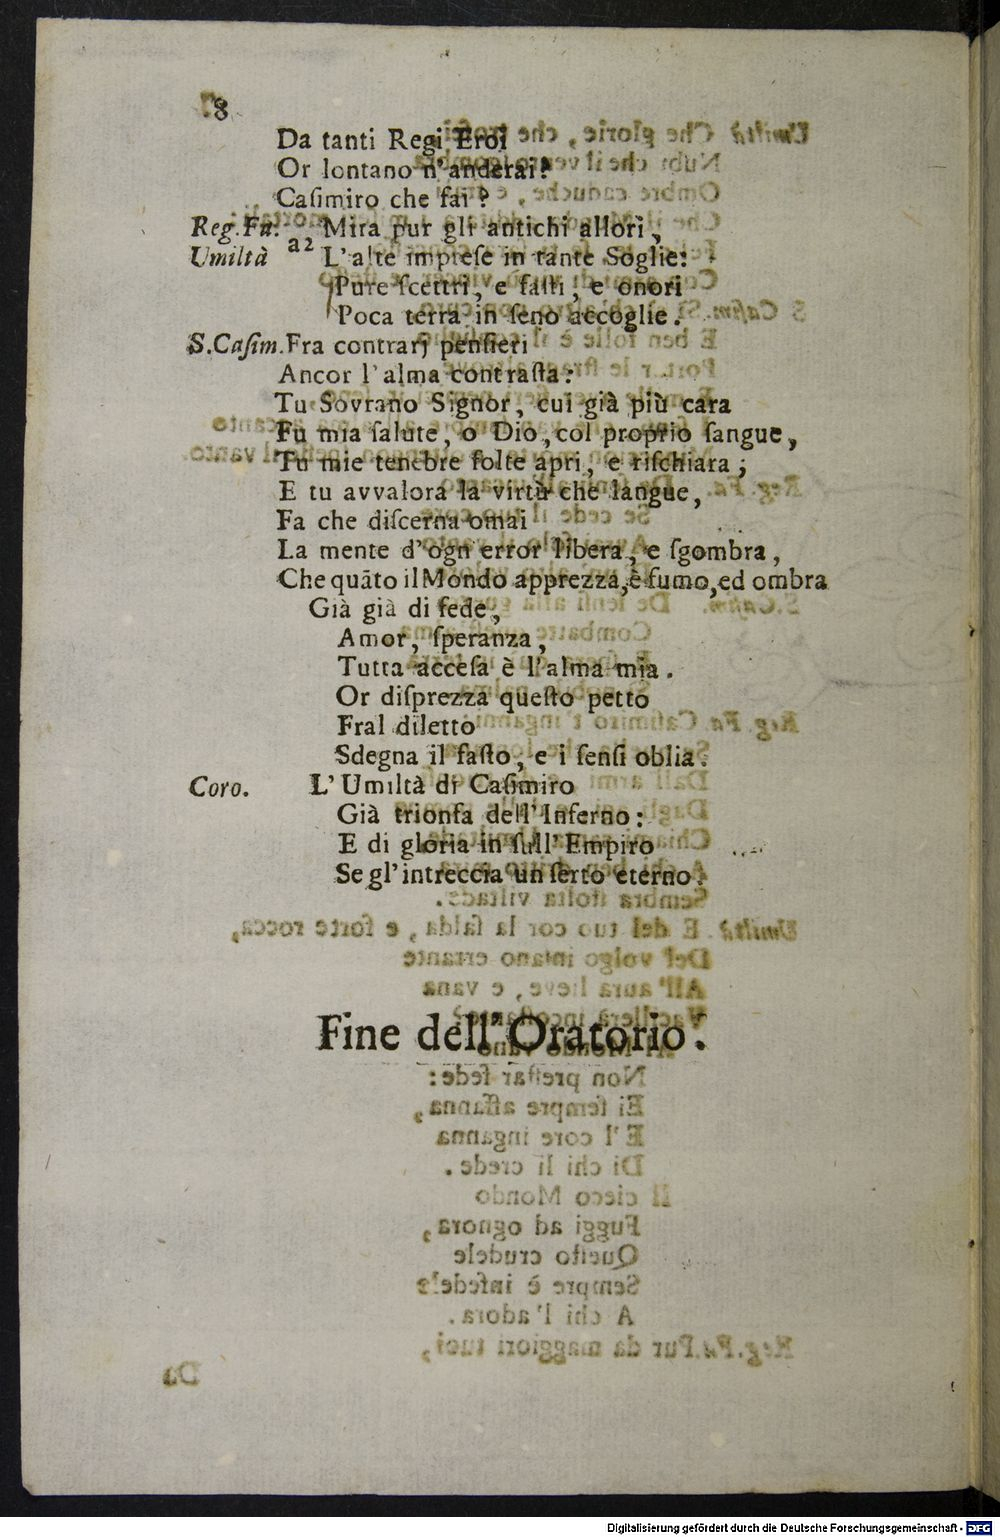 8
Da tanti Regi Eroi
Or lontano n'anderai?
Caſimiro che fai?
Reg.Fa. Mira pur gli antichi allori,
Umiltà a2 L'alte impreſe in tante Soglie:
Pure ſcettri, e faſti, e onori
Poca terra in ſeno accoglie.
S.Caſim. Fra contrarj penſieri
Ancor l'alma contraſta:
Tu Sovrano Signor, cui già più cara
Fu mia ſalute, o Dio, col proprio ſangue,
Tu mie tenebre folte apri, e riſchiara;
E tu avvalora la virtù che langue,
Fa che diſcerna omai
La mente d'ogn'error libera, e ſgombra,
Che quāto il Mondo apprezza, è fumo, ed ombra
Già già di fede,
Amor, ſperanza,
Tutta acceſa è l'alma mia.
Or diſprezza queſto petto
Fral diletto
Sdegna il faſto, e i ſenſi oblia.
Coro. L'Umiltà di Caſimiro
Già trionfa dell'Inferno:
E di gloria in ſull'Empiro
Se gl'intreccia un ſerto eterno.
Fine dell'Oratorio.
Digitalisierung gefördert durch die Deutsche Forschungsgemeinschaft - DFG